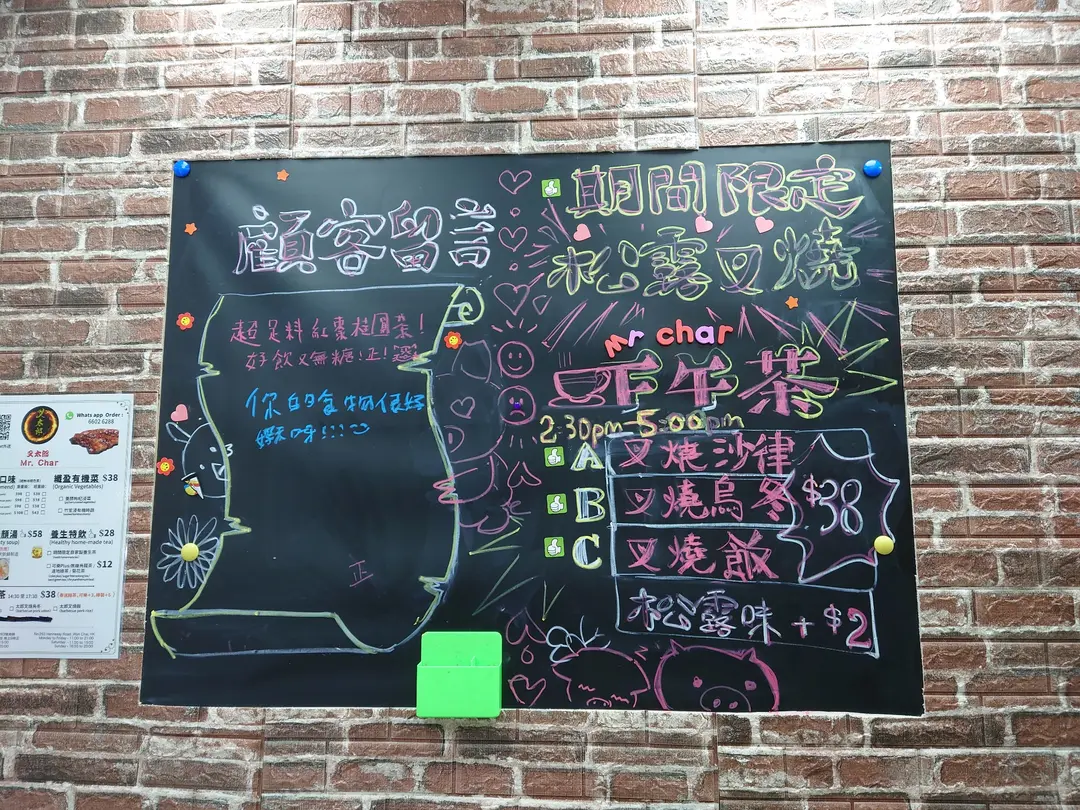 顧客留言
超足料紅棗桂圓茶!
好飲又無糖!正!
你的食物很好
正
期間限定
松露叉燒
Mr char
下午茶
2:30pm-5:00pm
A 叉燒沙律
B 叉燒烏冬
C 叉燒飯
$38
松露味 + $2
Whats app Order:
6602 6288
叉太郎
Mr. Char
口味
纖盈有機菜 $38
(Organic Vegetables)
顏湯 $58
養生特飲 $28
(Healthy home-made tea)
$12
茶 14:30 至 17:30 $38